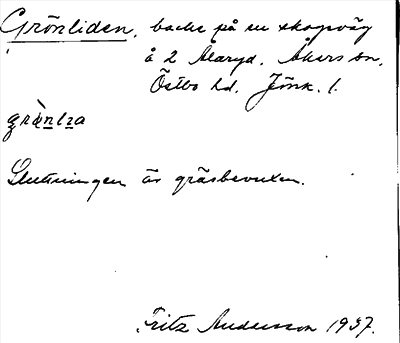 Grönliden, backe på en skogsväg
å 2 Alaryd. Åkers sn.
Östbo hd. Jönk. l.
grànlıa
Sluttningen är gräsbevuxen.
Fritz Andersson 1937.